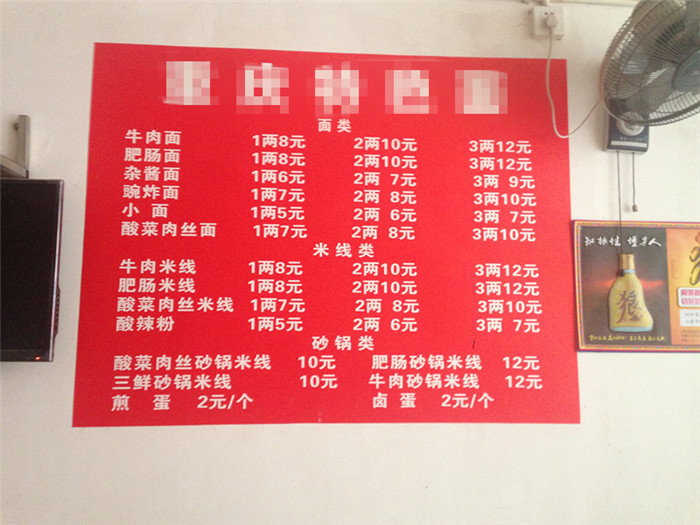 面类
牛肉面 1两8元 2两10元 3两12元
肥肠面 1两8元 2两10元 3两12元
杂酱面 1两6元 2两 7元 3两 9元
豌炸面 1两7元 2两 8元 3两10元
小 面 1两5元 2两 6元 3两 7元
酸菜肉丝面 1两7元 2两 8元 3两10元
米线类
牛肉米线 1两8元 2两10元 3两12元
肥肠米线 1两8元 2两10元 3两12元
酸菜肉丝米线 1两7元 2两 8元 3两10元
酸辣粉 1两5元 2两 6元 3两 7元
砂锅类
酸菜肉丝砂锅米线 10元 肥肠砂锅米线 12元
三鲜砂锅米线 10元 牛肉砂锅米线 12元
煎 蛋 2元/个 卤 蛋 2元/个